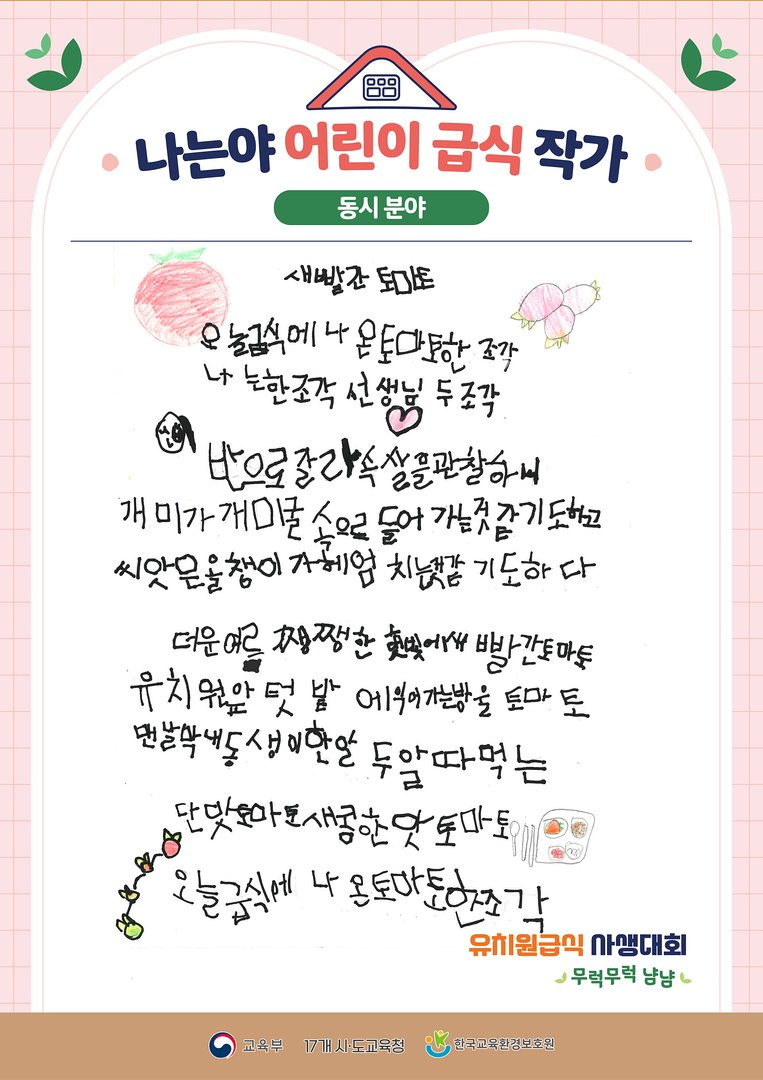 나는야 어린이 급식 작가
동시 분야
새빨간 토마토
오늘급식에 나 온토마토한 조각
나 는한조각 선생님 두조각
반으로잘라속살을관찰하니
개미가 개미굴 속으로 들어 가는것 같기도하고
씨앗은올챙이 가헤엄 치는것같 기도하 다
더운여름 쨍쨍한 햇빛에새 빨간토마토
유치원앞 텃 밭 에익어가는방울 토마토
맨날막내동생이한알 두알따먹는
단맛토마토새콤한맛토마토
오늘급식에 나 온토마토한조각
유치원급식 사생대회
무럭무럭 냠냠
교육부 17개 시·도교육청 한국교육환경보호원